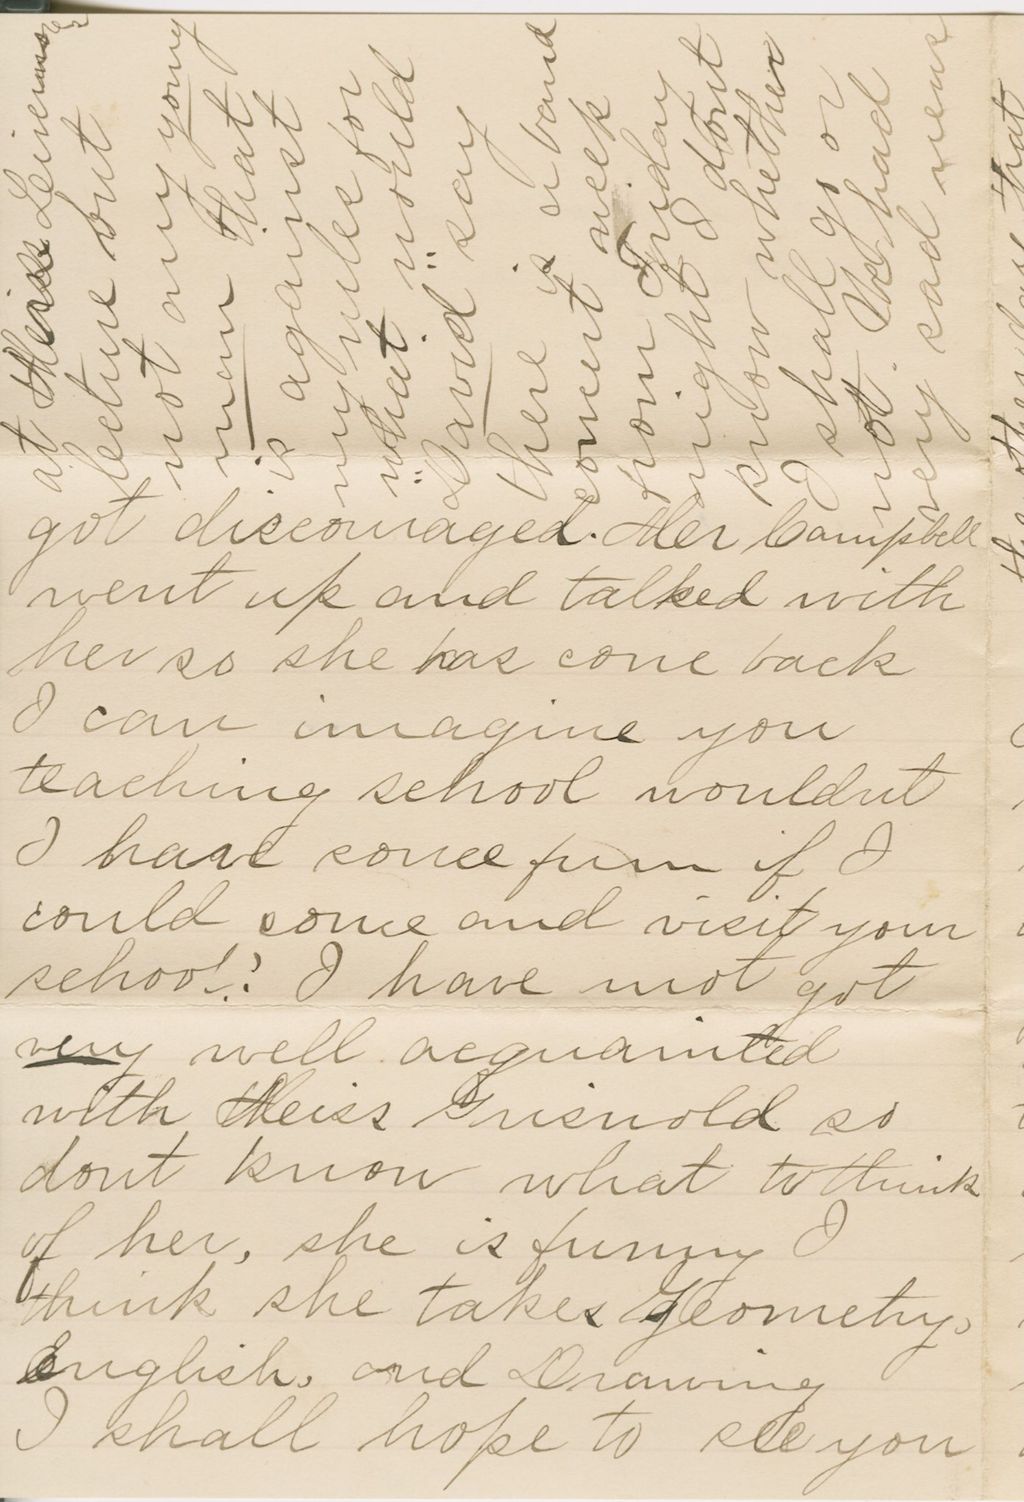 got discouraged. Mr Campbell
went up and talked with
her so she has come back
I can imagine you
teaching school wouldnt
I have some fun if I
could come and visit your
school!? I have not got
very well acquainted
with Miss Griswold so
dont know what to think
of her, she is funny I
think she takes Geometry,
English, and Drawing
I shall hope to see you
at Miss
lecture but
not any young
man that
is against
my rules for
"what would
David" say
there is a band
concert week
from Friday
night I dont
know whether
I shall go or
not. We had
very sad news
the other day that